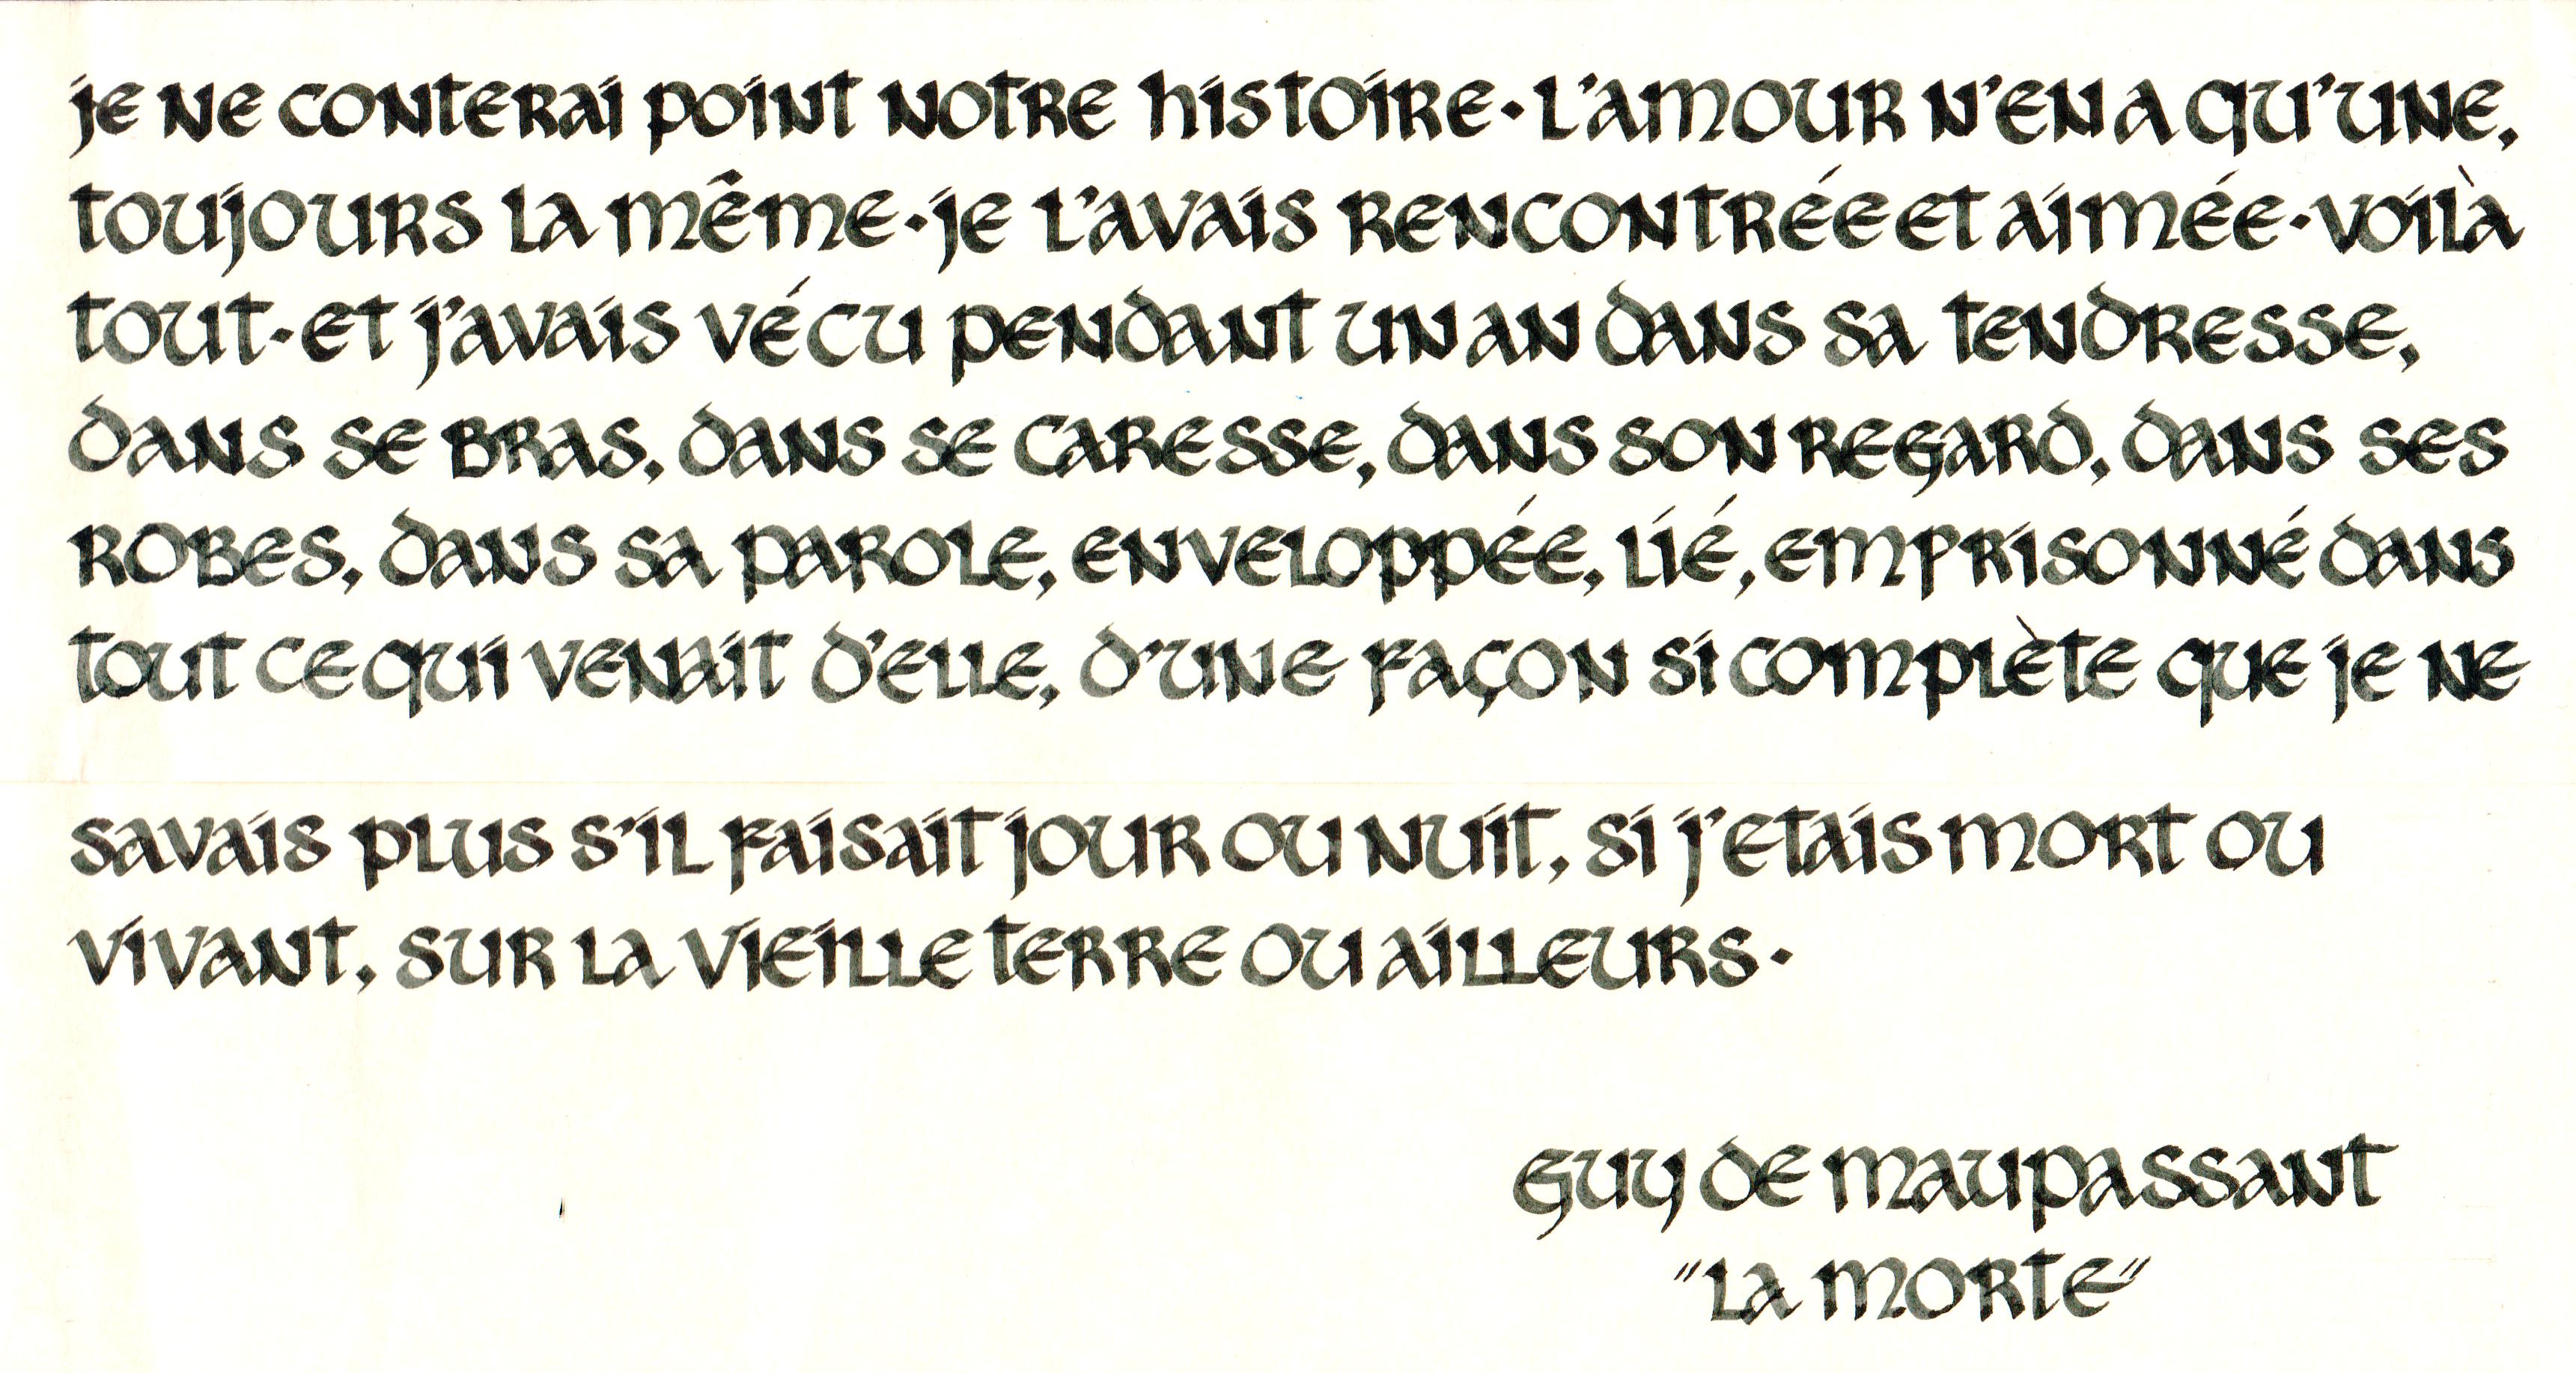 je ne conterai point notre histoire· l'amour n'en a qu'une,
toujours la même·je l'avais rencontrée et aimée·voilà
tout·et j'avais vécu pendant un an dans sa tendresse,
dans se bras, dans se caresse, dans son regard, dans ses
robes, dans sa parole, enveloppée, lié, emprisonné dans
tout ce qui venait d'elle, d'une façon si complète que je ne
savais plus s'il faisait jour ou nuit, si j'etais mort ou
vivant, sur la vieille terre ou ailleurs·
guy de maupassant
"la morte"